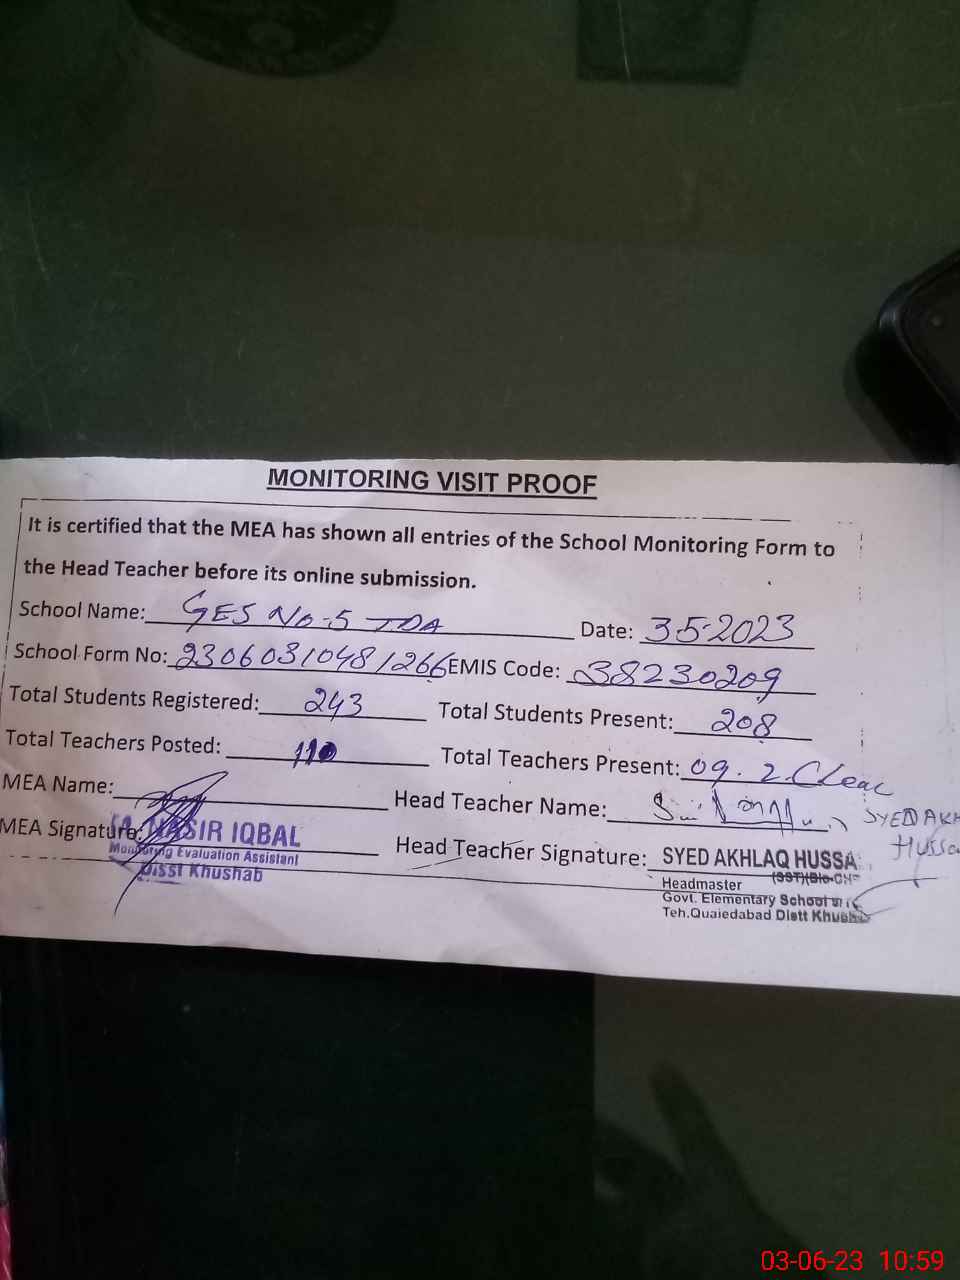 MONITORING VISIT PROOF
It is certified that the MEA has shown all entries of the School Monitoring Form to
the Head Teacher before its online submission.
School Name: GES No-5 TDA Date: 3-5-2023
School Form No: 23060310481266 EMIS Code: 38230209
Total Students Registered: 243 Total Students Present: 208
Total Teachers Posted: Total Teachers Present: 09. 2.
MEA Name: Head Teacher Name: SYED AKH
Hussa
MEA Signature: NASIR IQBAL Head Teacher Signature: SYED AKHLAQ HUSSA
Monitoring Evaluation Assistant
Disst Khushab
Headmaster
Govt. Elementary School
Teh.Quaiedabad Distt Khushab
03-06-23 10:59